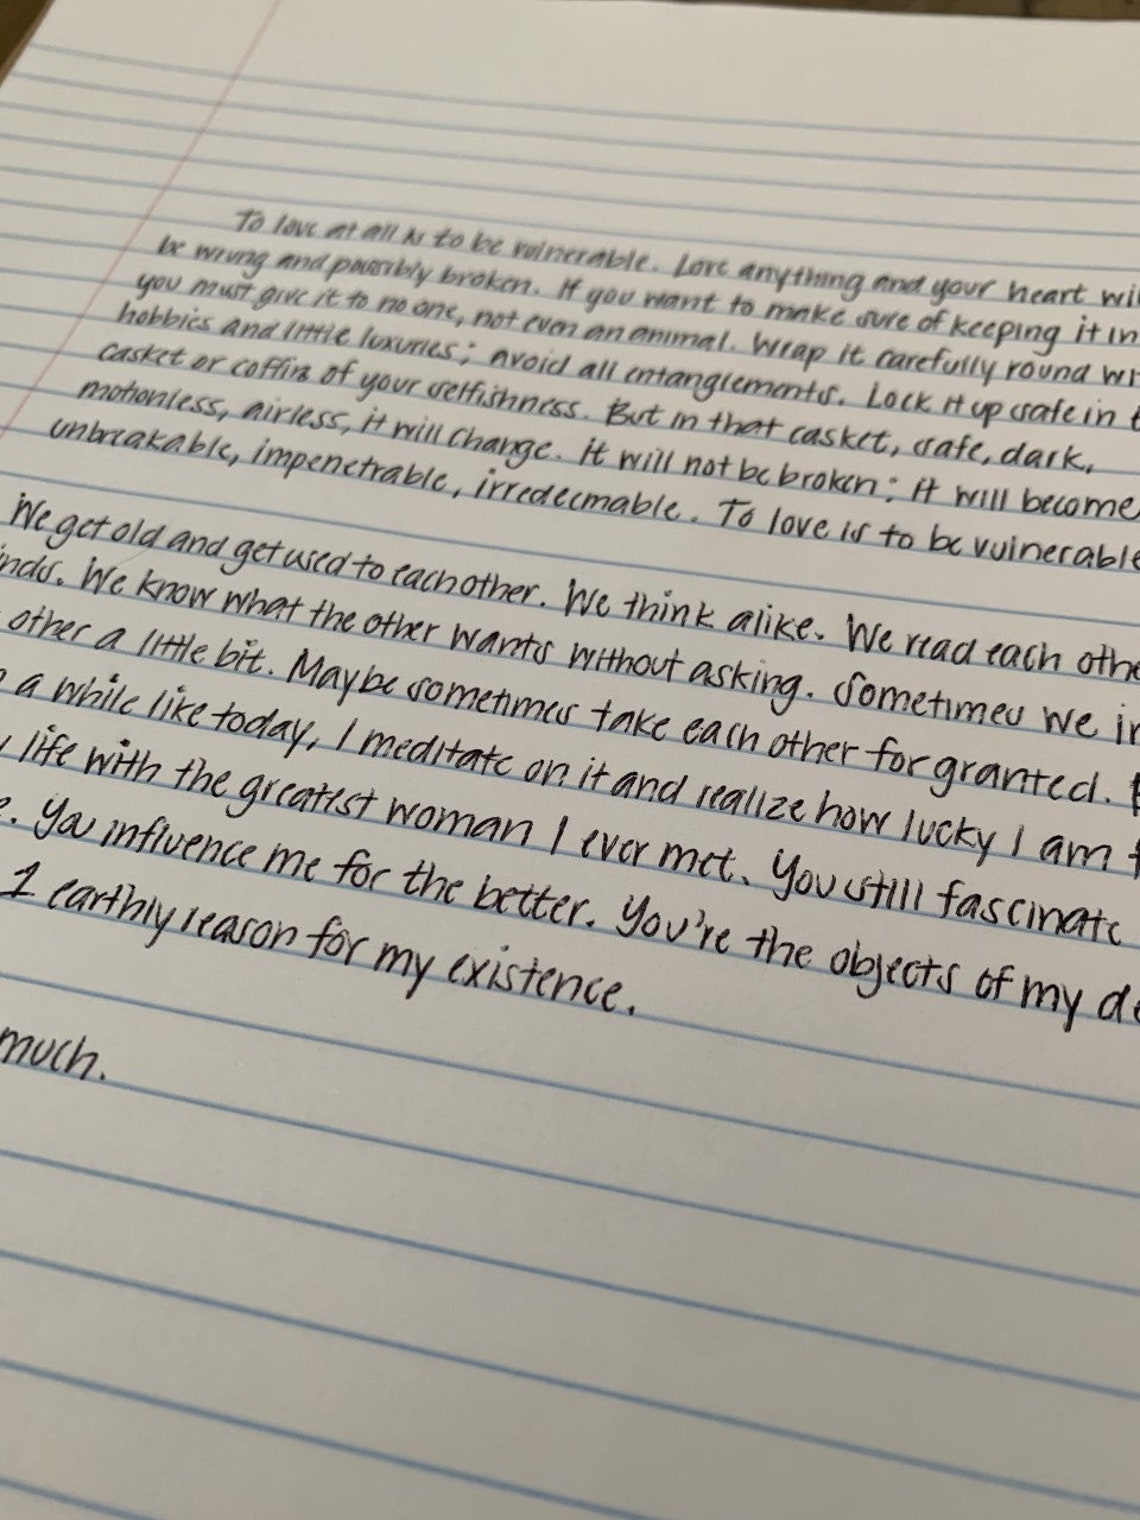 To love at all is to be vulnerable. Love anything and your heart wil
be wrung and possibly broken. If you want to make sure of keeping it in
you must give it to no one, not even an animal. Wrap it carefully round wi
hobbies and little luxuries; avoid all entanglements. Lock it up safe in t
casket or coffin of your selfishness. But in that casket, safe, dark,
motionless, airless, it will change. it will not be broken; it will become
unbreakable, impenetrable, irredeemable. To love is to be vulnerable
We get old and get used to each other. We think alike. We read each othe
inds. We know what the other wants without asking. Sometimes we ir
other a little bit. Maybe sometimes take each other for granted.
a while like today, I meditate on it and realize how lucky I am t
life with the greatest woman I ever met. You still fascinate
e. You influence me for the better. You're the objects of my de
1 earthly reason for my existence.
much.